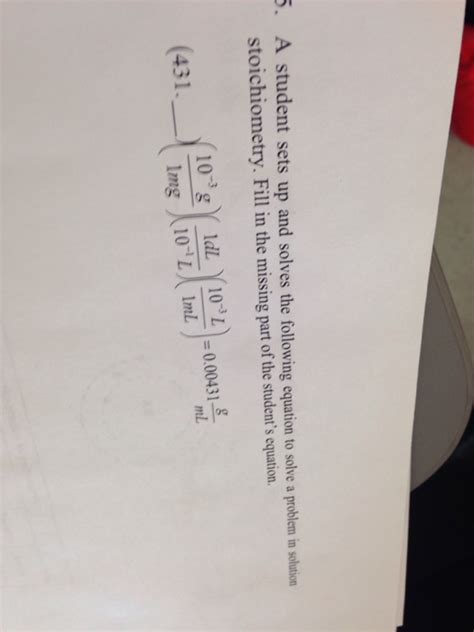 5. A student sets up and solves the following equation to solve a problem in solution
stoichiometry. Fill in the missing part of the student's equation.
(431. __)(10⁻³ g / 1mg)(1dL / 10⁻¹ L)(10⁻³ L / 1mL) = 0.00431 g / mL